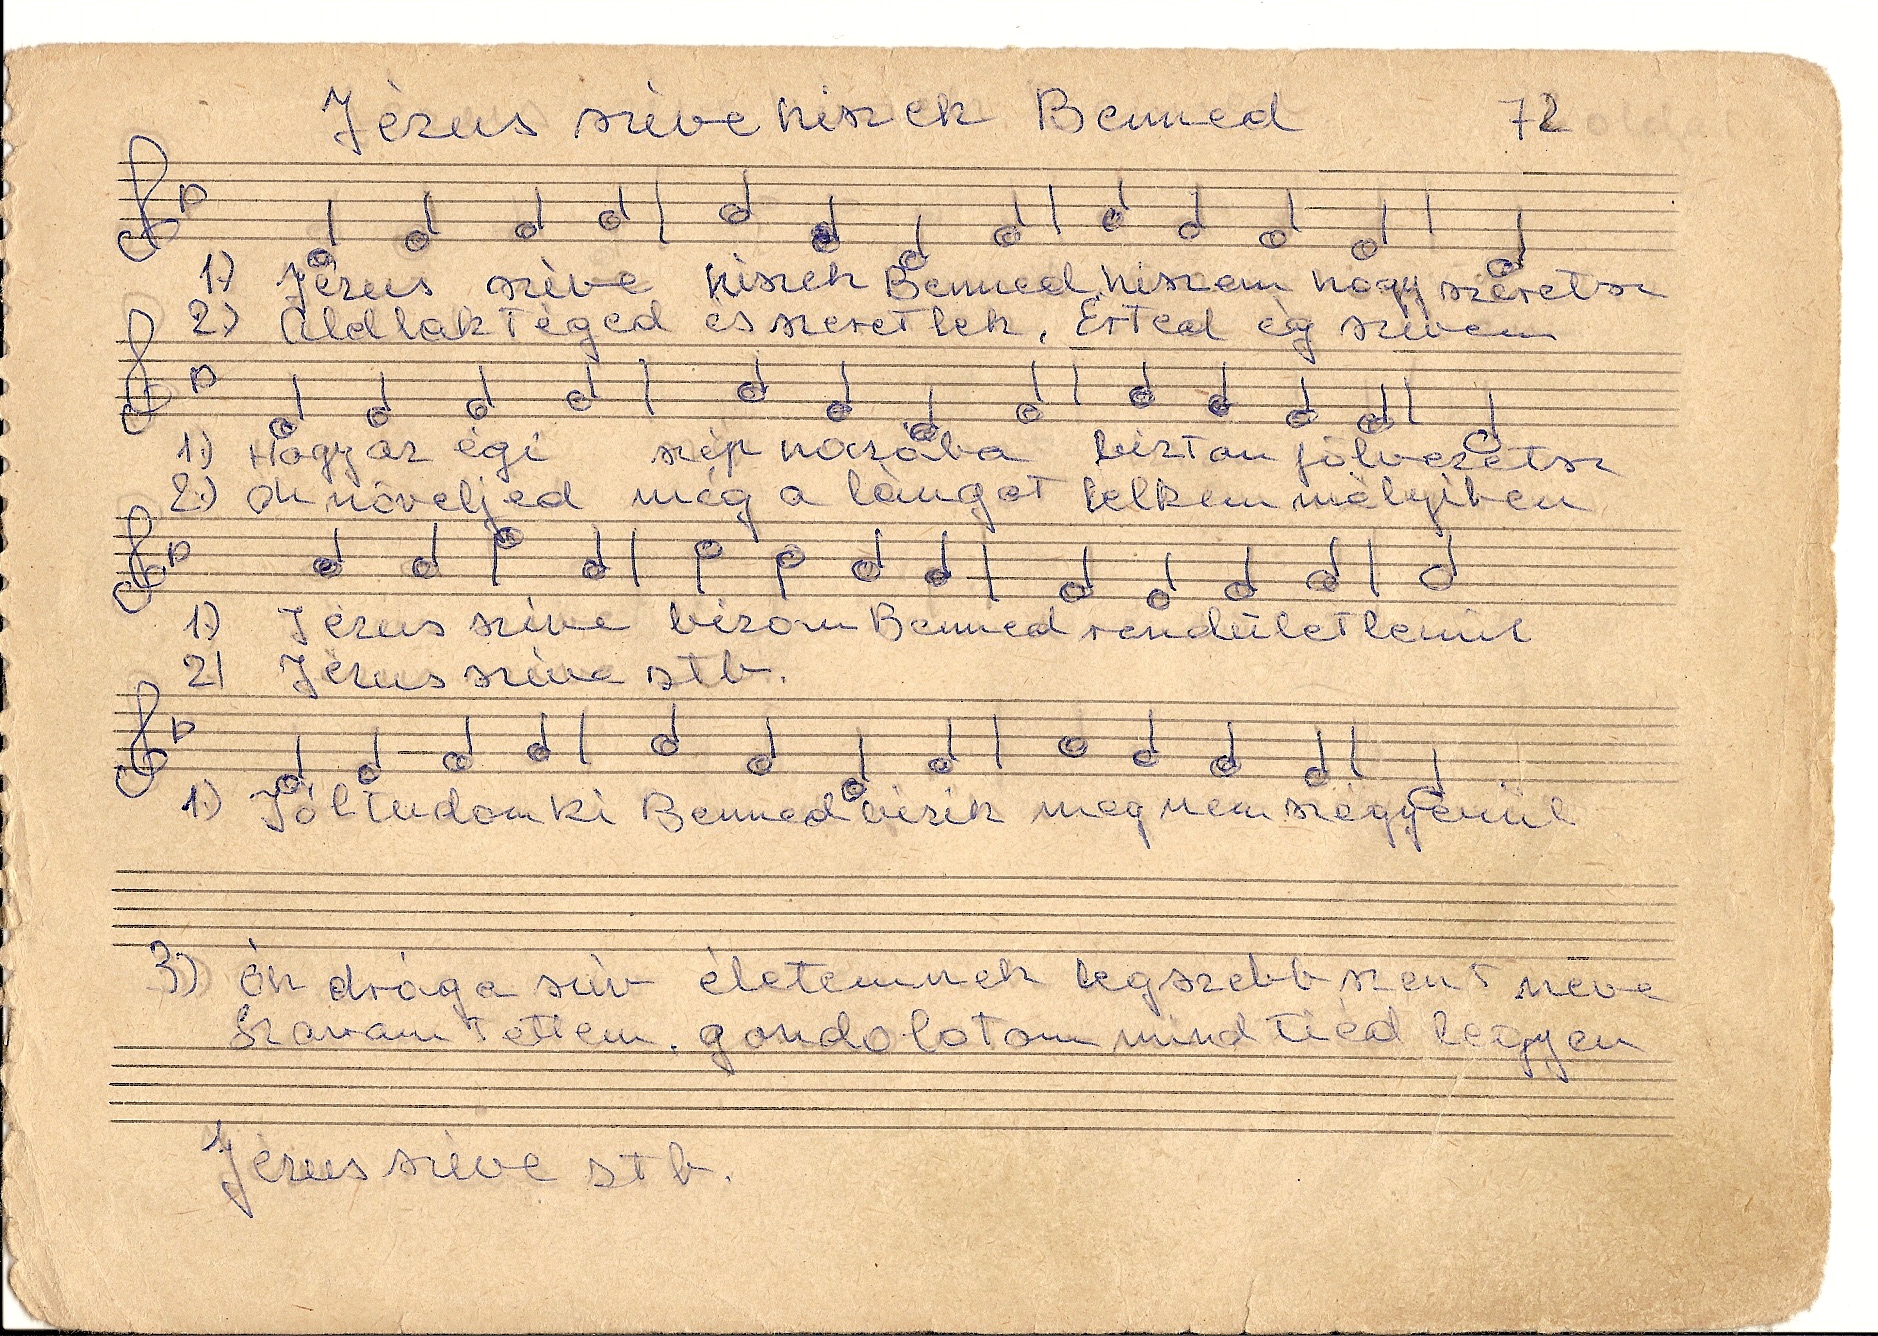 Jézus szíve hiszek Benned 72
1.) Jézus szíve hiszek Benned hiszem hogy szeretsz
2.) Áldlak Téged és szeretlek, Érted ég szívem
1.) Hogy az égi szép hazába biztan fölvezetsz
2.) Óh növeljed még a lángot lelkem mélyiben
1.) Jézus szíve bízom Benned rendületlenül
2) Jézus szíve stb.
1.) Jól tudom ki Benned bízik meg nem szégyenül
3.) Óh drága szív életemnek legszebb szent neve
Szavam Tettem, gondolatom mind tiéd legyen
Jézus szíve stb.